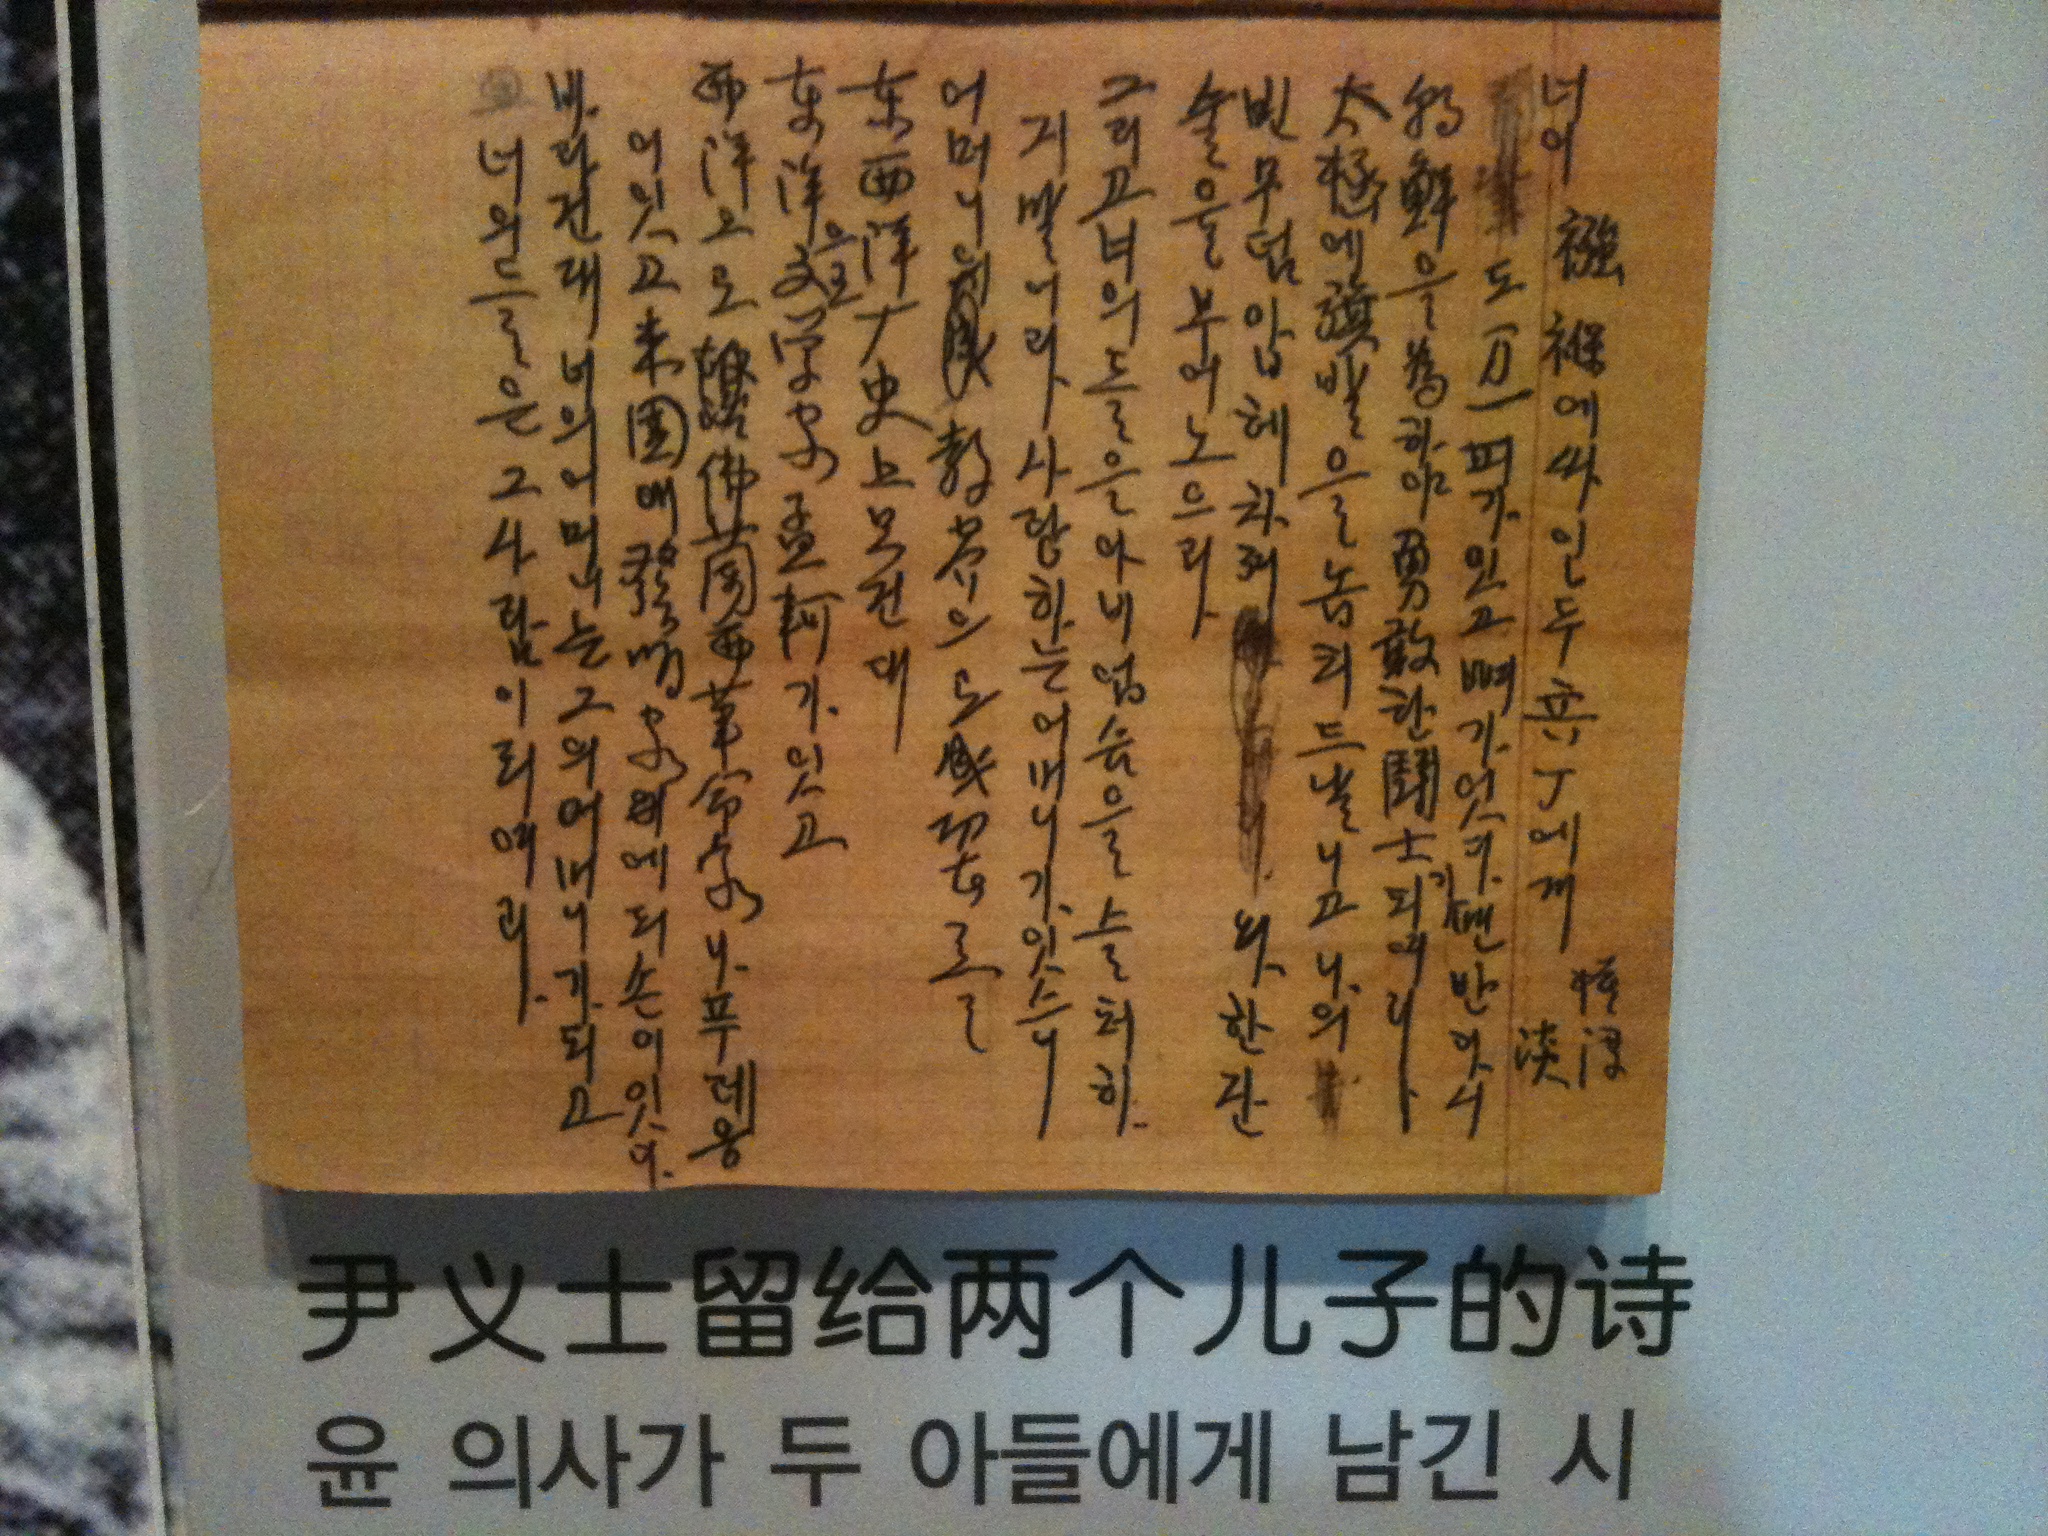 너이 襁褓에 싸인 두 兵丁에게
淳
淡
도 万一 피가 잇고 뼈가 잇다면 반다시
朝鮮을 爲하야 勇敢한 鬪士가 되여라
太極에 旗발을 놉피 드날니고 나의
빈 무덤 압헤 차저와 한 잔
술을 부어 노으라
그리고 너의들은 아비 업슴을 슬퍼하
지 말니라 사랑하는 어머니가 잇스니
어머니의 敎育으로 成功者를
东西洋으로 史上 보건대
东洋 文学家 孟軻가 잇고
西洋으로 佛蘭西 革命家 나푸레옹
이 잇고 米國에 發明家 에듸손이 잇다
바라건대 너의 어머니는 그의 어머니가 되고
너의들은 그 사람이 되여라
尹义士留给两个儿子的诗
윤 의사가 두 아들에게 남긴 시